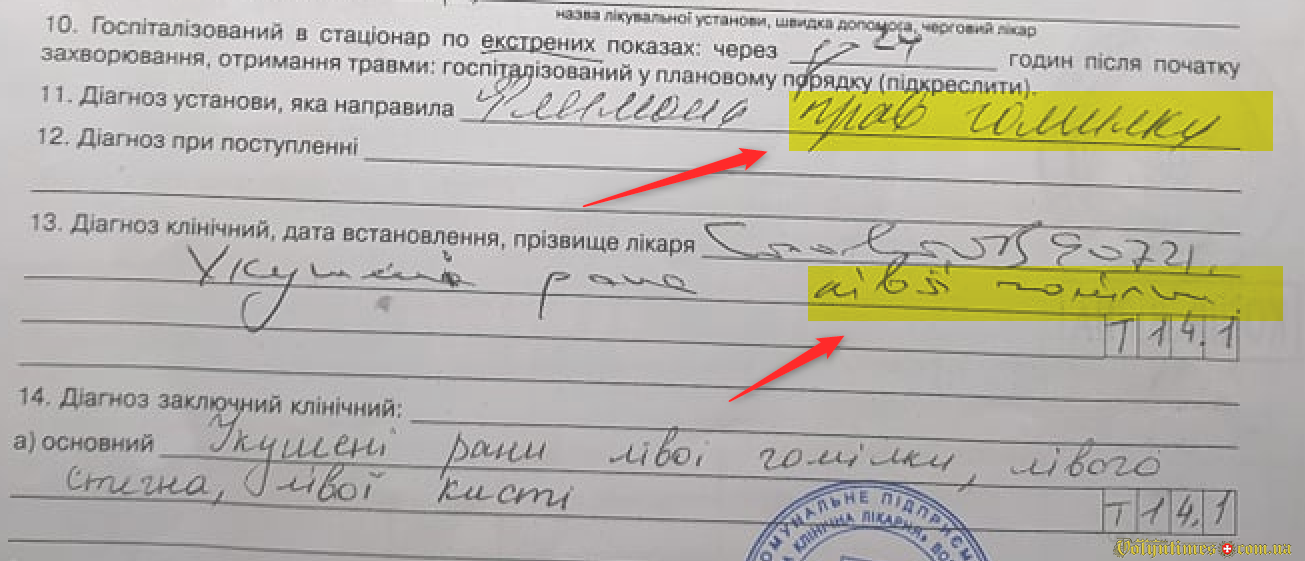 назва лікувальної установи, швидка допомога, черговий лікар
10. Госпіталізований в стаціонар по екстрених показах: через 24 годин після початку
захворювання, отримання травми: госпіталізований у плановому порядку (підкреслити).
11. Діагноз установи, яка направила Флегмона прав гомилку
12. Діагноз при поступленні
13. Діагноз клінічний, дата встановлення, прізвище лікаря
Укушені рана лівої гомілки
T 1 4. 1
14. Діагноз заключний клінічний:
а) основний Укушені рани лівої гомілки, лівого
стегна, лівої кисті
T 1 4. 1
КОМУНАЛЬНЕ ПІДПРИЄМ
КЛІНІЧНА ЛІКАРНЯ
Volyntimes.com.ua